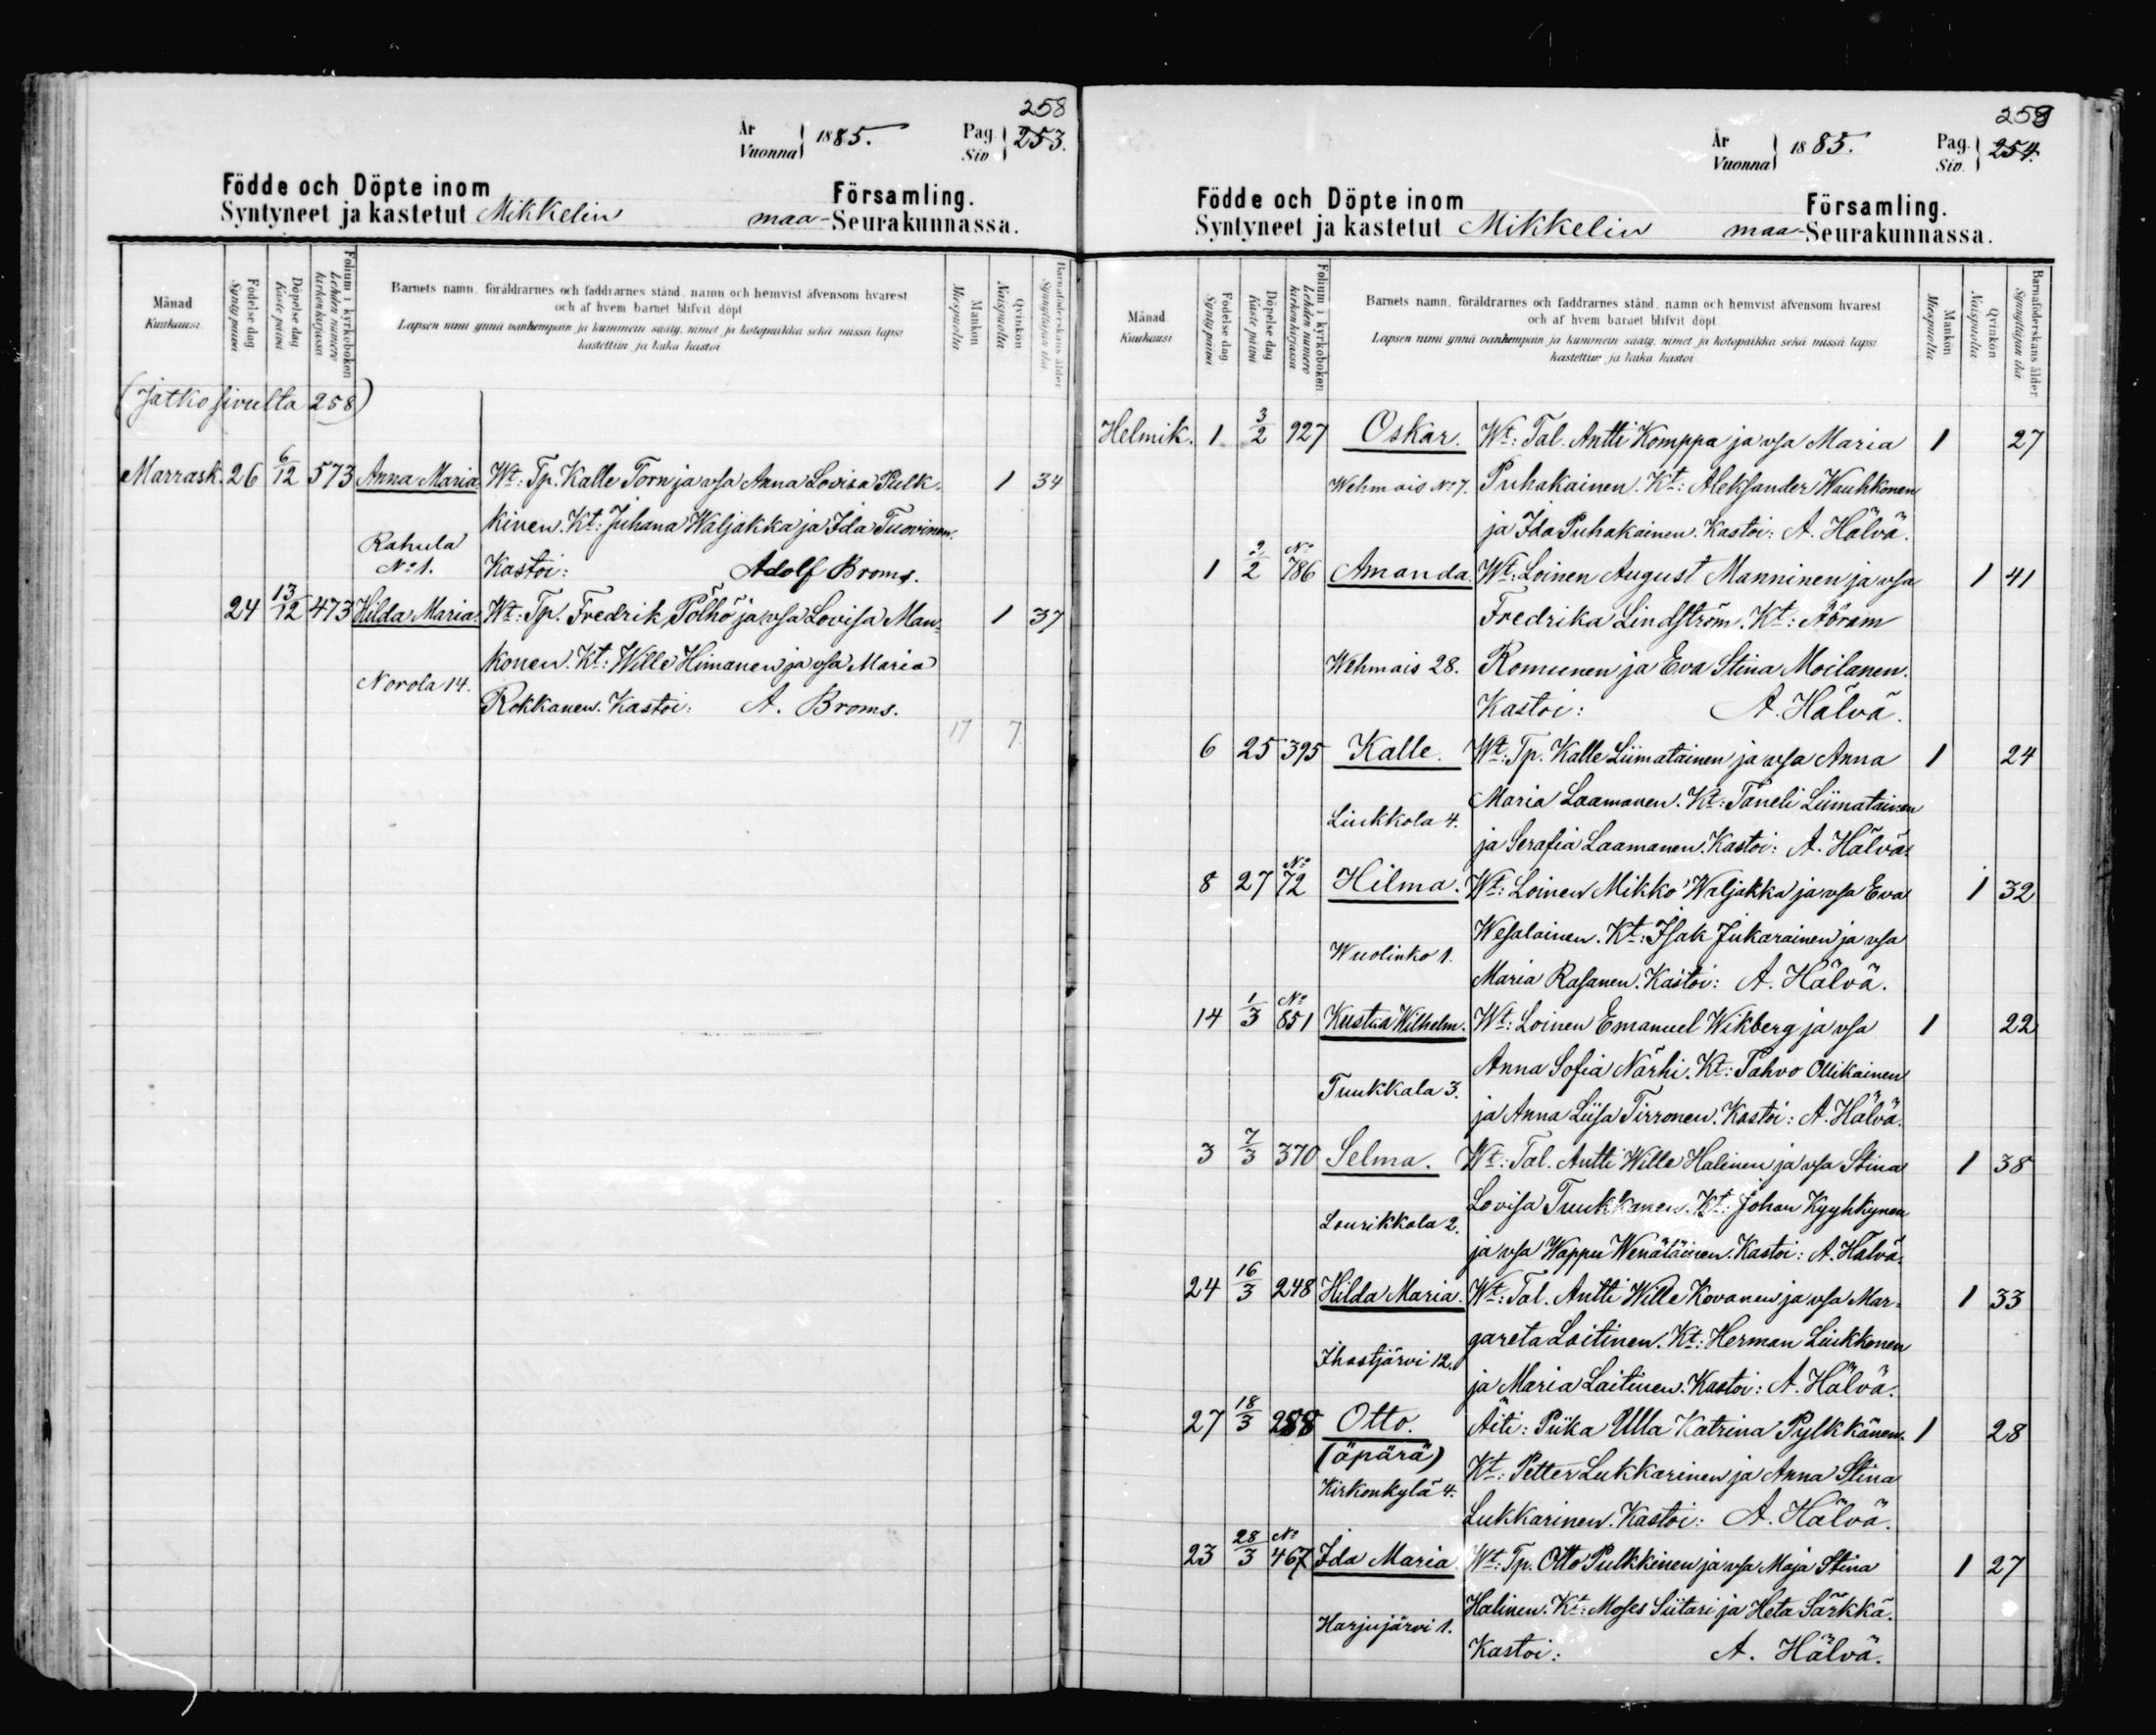 258
År
Vuonna 1885.
Pag.
Siv. 253.
Födde och Döpte inom Församling.
Syntyneet ja kastetut Mikkelin maa-Seurakunnassa.
Månad
Kuukausi
Födelse dag
Synty päivä
Döpelse dag
Kaste päivä
Folium i kyrkoboken
Lehden numero kirkonkirjassa
Barnets namn, föräldrarnes och faddrarnes stånd, namn och hemvist äfvensom hvarest
och af hvem barnet blifvit döpt
Lapsen nimi ynnä vanhempain ja kummein sääty, nimet ja kotopaikka sekä missä lapsi
kastettiin ja kuka kastoi
Mankön
Miespuolia
Qvinkön
Naispuolia
Barnaföderskans ålder
Synnyttäjän ikä
(Jatko sivulta 258)
Marrask. 26 6/12 573 Anna Maria. Wt: Tp. Kalle Torn ja vsa Anna Lovisa Pulk- 1 34
kinen. Kt: Juhana Waljakka ja Ida Tuovinen.
Rahula
No 1. Kastoi: Adolf Broms.
24 13/12 473 Hilda Maria. Wt: Tp. Fredrik Pölhö ja vsa Lovisa Man- 1 37
konen. Kt: Wille Himanen ja vsa Maria
Norola 14.
Rokkanen. Kastoi: A. Broms.
17 7.
259
År
Vuonna 1885.
Pag.
Siv. 254.
Födde och Döpte inom Församling.
Syntyneet ja kastetut Mikkelin maa-Seurakunnassa.
Månad
Kuukausi
Födelse dag
Synty päivä
Döpelse dag
Kaste päivä
Folium i kyrkoboken
Lehden numero kirkonkirjassa
Barnets namn, föräldrarnes och faddrarnes stånd, namn och hemvist äfvensom hvarest
och af hvem barnet blifvit döpt
Lapsen nimi ynnä vanhempain ja kummein sääty, nimet ja kotopaikka sekä missä lapsi
kastettiin ja kuka kastoi
Mankön
Miespuolia
Qvinkön
Naispuolia
Barnaföderskans ålder
Synnyttäjän ikä
Helmik. 1 3/2 927 Oskar. Wt: Tal. Antti Komppa ja vsa Maria 1 27
Wehmais No 7. Puhakainen. Kt: Aleksander Wauhkonen
ja Ida Puhakainen. Kastoi: A. Hälvä.
1 2/2 No 786 Amanda. Wt: Loinen August Manninen ja vsa 1 41
Fredrika Lindström. Kt: Abram
Wehmais 28. Romunen ja Eva Stina Moilanen.
Kastoi: A. Hälvä.
6 25 395 Kalle. Wt: Tp. Kalle Liimatainen ja vsa Anna 1 24
Maria Laamanen. Kt: Taneli Liimatainen
Liukkola 4.
ja Serafia Laamanen. Kastoi: A. Hälvä.
8 27 No 72 Hilma. Wt: Loinen Mikko Waljakka ja vsa Eva 1 32
Wesalainen. Kt: Isak Jukarainen ja vsa
Wuolinko 1.
Maria Rasanen. Kastoi: A. Hälvä.
14 1/3 No 851 Kustaa Wilhelm. Wt: Loinen Emanuel Wikberg ja vsa 1 22
Anna Sofia Närhi. Kt: Pahvo Ollikainen
Tuukkala 3.
ja Anna Liisa Tirronen. Kastoi: A. Hälvä.
3 7/3 370 Selma. Wt: Tal. Antti Wille Halinen ja vsa Stina 1 38
Lovisa Tuukkanen. Kt: Johan Kyyhkynen
Lourikkala 2.
ja vsa Wappu Wenäläinen. Kastoi: A. Hälvä.
24 16/3 248 Hilda Maria. Wt: Tal. Antti Wille Kovanen ja vsa Mar- 1 33
gareta Loitinen. Kt: Herman Liukkonen
Ihastjärvi 12.
ja Maria Laitinen. Kastoi: A. Hälvä.
27 18/3 288 Otto. Äiti: Piika Ulla Katrina Pylkkänen. 1 28
(äpärä)
Kt: Petter Lukkarinen ja Anna Stina
Kirkonkylä 4.
Lukkarinen. Kastoi: A. Hälvä.
23 28/3 No 467 Ida Maria. Wt: Tp. Otto Pulkkinen ja vsa Maja Stina 1 27
Halinen. Kt: Moses Siitari ja Heta Särkkä.
Harjujärvi 1.
Kastoi: A. Hälvä.